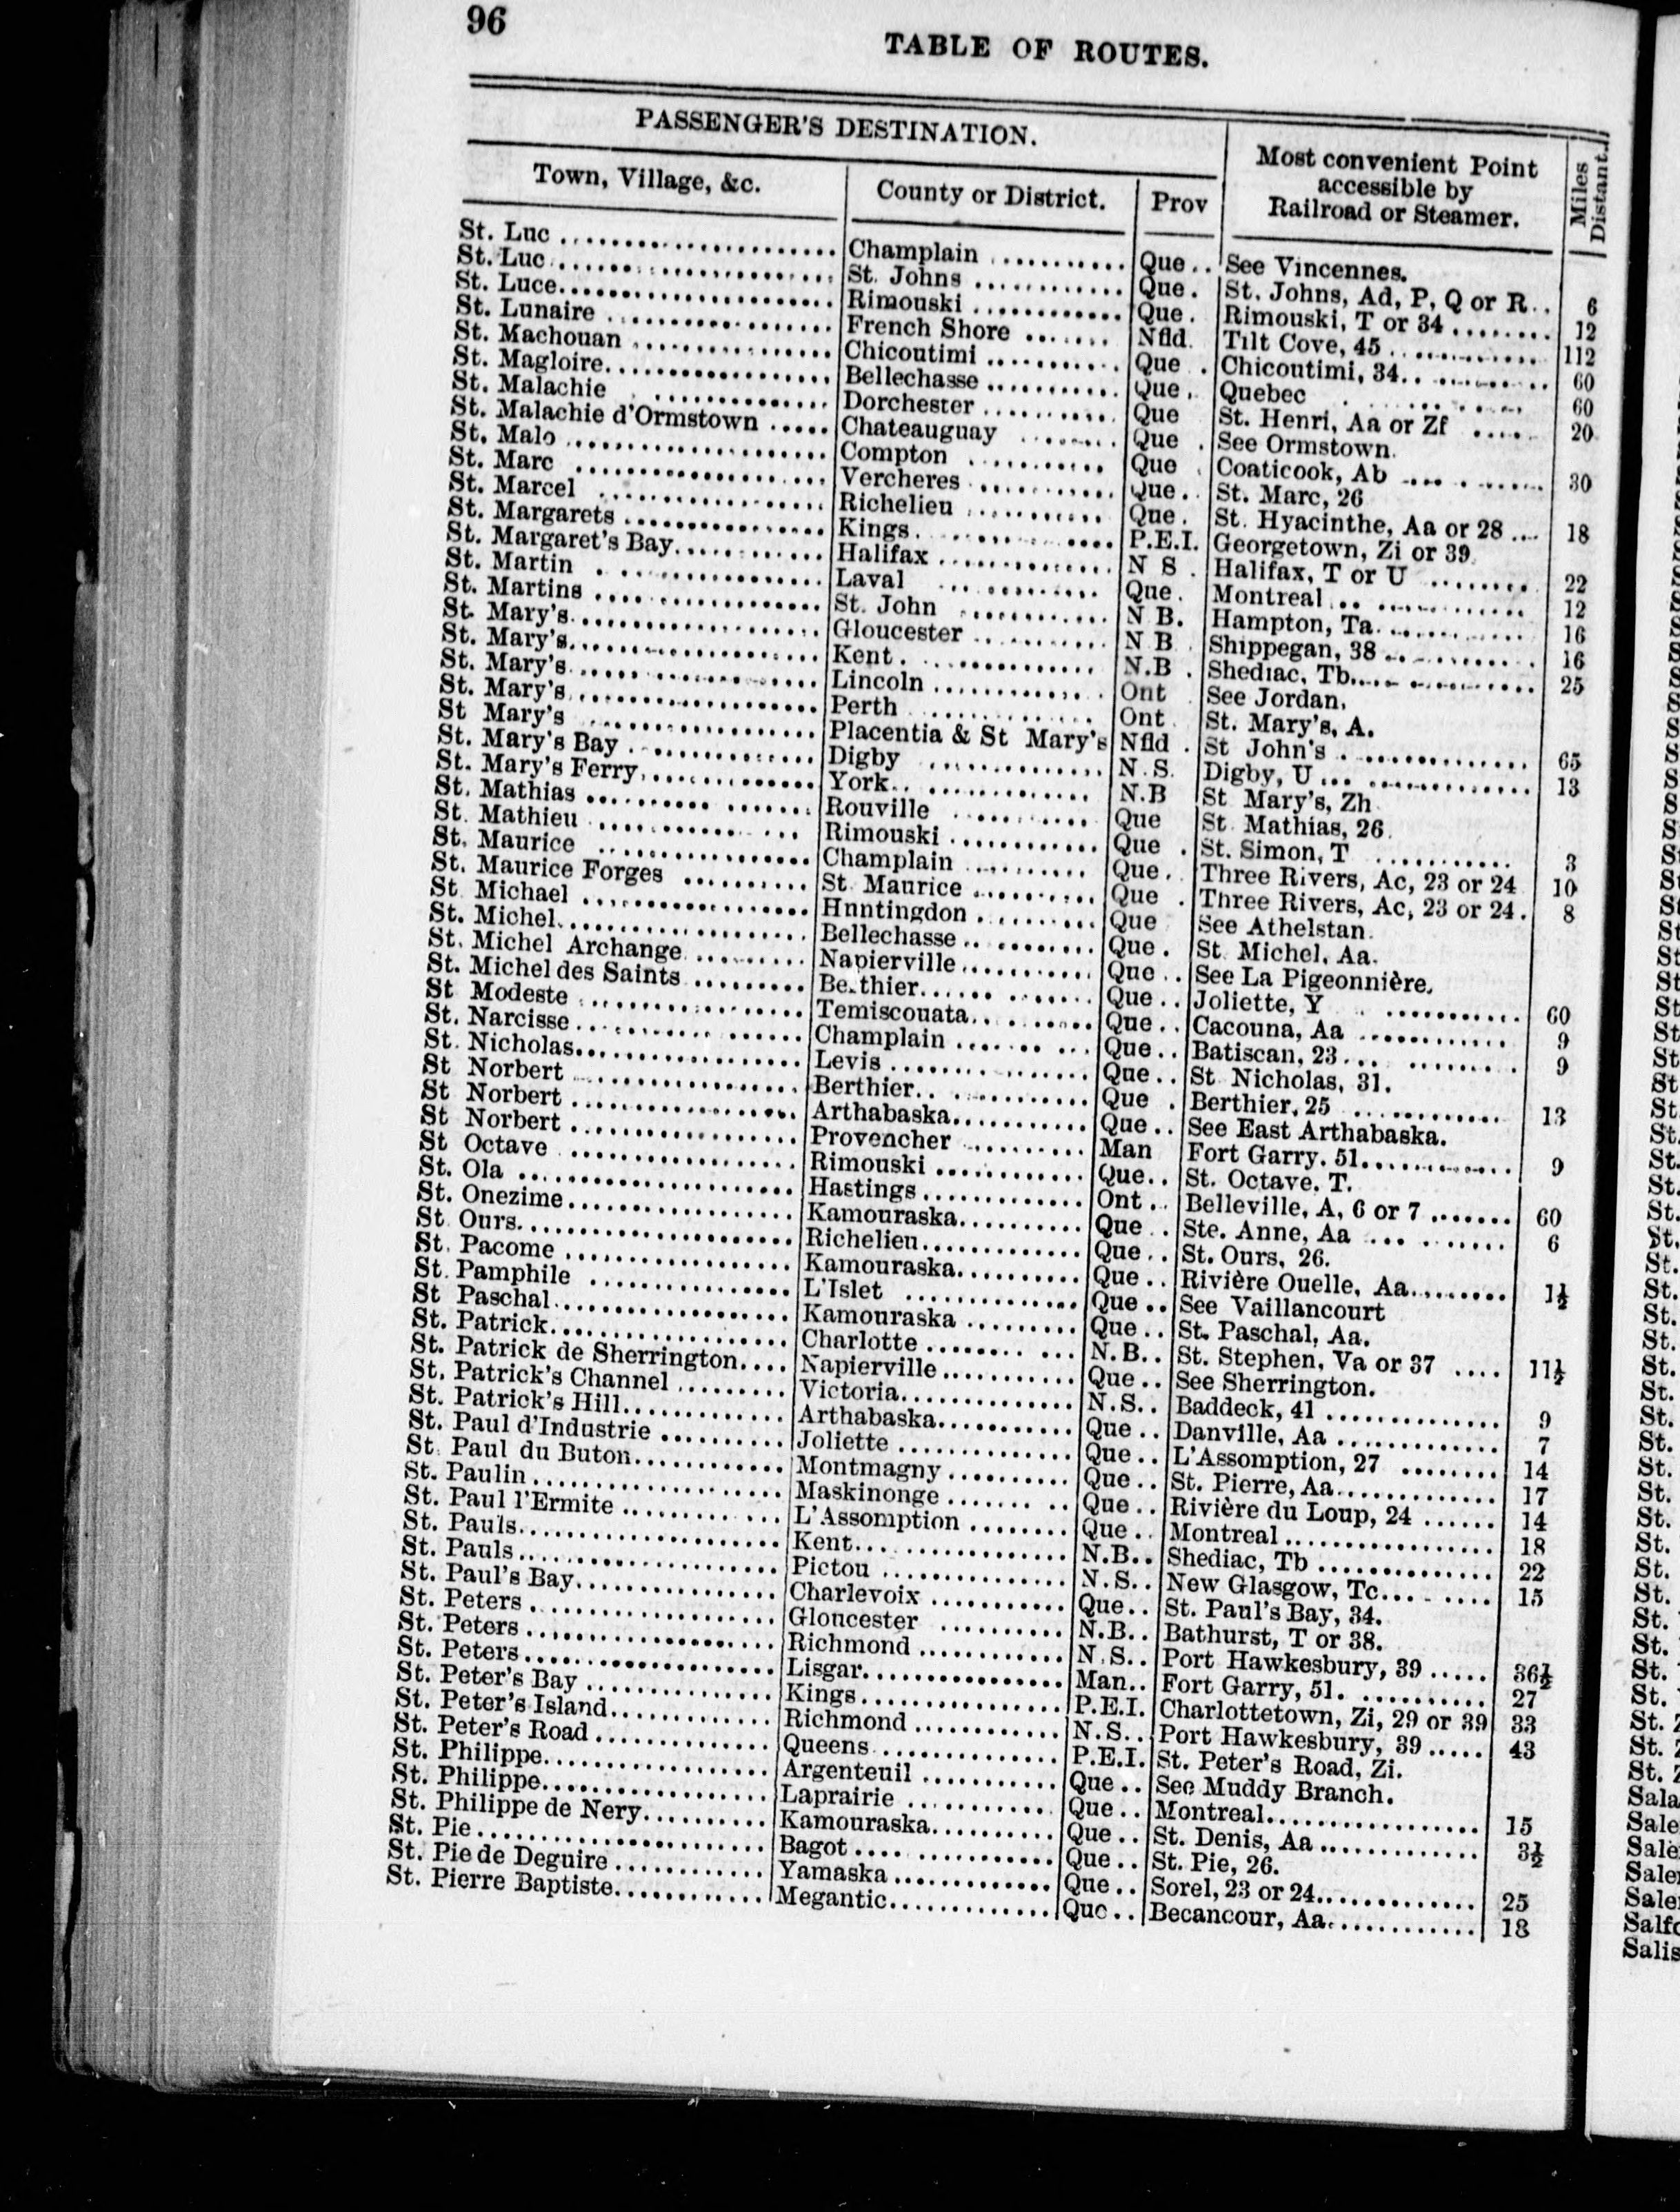 96
TABLE OF ROUTES.
PASSENGER'S DESTINATION. Most convenient Point accessible by Railroad or Steamer. Miles Distant.
Town, Village, &c. County or District. Prov
St. Luc ..... Champlain ..... Que.. See Vincennes.
St. Luc ..... St. Johns ..... Que. St. Johns, Ad, P, Q or R.. 6
St. Luce ..... Rimouski ..... Que. Rimouski, T or 34 ..... 12
St. Lunaire ..... French Shore ..... Nfld. Tilt Cove, 45 ..... 112
St. Machouan ..... Chicoutimi ..... Que . Chicoutimi, 34 ..... 60
St. Magloire ..... Bellechasse ..... Que. Quebec ..... 60
St. Malachie ..... Dorchester ..... Que St. Henri, Aa or Zf ..... 20
St. Malachie d'Ormstown ..... Chateauguay ..... Que . See Ormstown.
St. Malo ..... Compton ..... Que . Coaticook, Ab ..... 30
St. Marc ..... Vercheres ..... Que.. St. Marc, 26
St. Marcel ..... Richelieu ..... Que. St. Hyacinthe, Aa or 28 ... 18
St. Margarets ..... Kings ..... P.E.I. Georgetown, Zi or 39.
St. Margaret's Bay ..... Halifax ..... N S . Halifax, T or U ..... 22
St. Martin ..... Laval ..... Que. Montreal ..... 12
St. Martins ..... St. John ..... N B. Hampton, Ta ..... 16
St. Mary's ..... Gloucester ..... N B . Shippegan, 38 ..... 16
St. Mary's ..... Kent ..... N.B . Shediac, Tb ..... 25
St. Mary's ..... Lincoln ..... Ont See Jordan.
St. Mary's ..... Perth ..... Ont. St. Mary's, A.
St Mary's ..... Placentia & St Mary's Nfld . St John's ..... 65
St. Mary's Bay ..... Digby ..... N.S. Digby, U ..... 13
St. Mary's Ferry ..... York ..... N.B St Mary's, Zh
St. Mathias ..... Rouville ..... Que St. Mathias, 26.
St. Mathieu ..... Rimouski ..... Que . St. Simon, T ..... 3
St. Maurice ..... Champlain ..... Que.. Three Rivers, Ac, 23 or 24 10
St. Maurice Forges ..... St. Maurice ..... Que . Three Rivers, Ac, 23 or 24. 8
St. Michael ..... Huntingdon ..... Que See Athelstan.
St. Michel ..... Bellechasse ..... Que. St. Michel, Aa.
St. Michel Archange ..... Napierville ..... Que.. See La Pigeonnière.
St. Michel des Saints ..... Berthier ..... Que.. Joliette, Y ..... 60
St Modeste ..... Temiscouata ..... Que.. Cacouna, Aa ..... 9
St. Narcisse ..... Champlain ..... Que.. Batiscan, 23 ..... 9
St. Nicholas ..... Levis ..... Que.. St. Nicholas, 31.
St Norbert ..... Berthier ..... Que . Berthier, 25 ..... 13
St Norbert ..... Arthabaska ..... Que.. See East Arthabaska.
St Norbert ..... Provencher ..... Man Fort Garry. 51 ..... 9
St Octave ..... Rimouski ..... Que.. St. Octave. T.
St. Ola ..... Hastings ..... Ont.. Belleville, A, 6 or 7 ..... 60
St. Onezime ..... Kamouraska ..... Que.. Ste. Anne, Aa ..... 6
St. Ours ..... Richelieu ..... Que.. St. Ours, 26.
St. Pacome ..... Kamouraska ..... Que.. Rivière Ouelle, Aa ..... 1½
St. Pamphile ..... L'Islet ..... Que.. See Vaillancourt
St Paschal ..... Kamouraska ..... Que.. St. Paschal, Aa.
St. Patrick ..... Charlotte ..... N.B.. St. Stephen, Va or 37 .... 11½
St. Patrick de Sherrington .... Napierville ..... Que.. See Sherrington.
St. Patrick's Channel ..... Victoria ..... N.S.. Baddeck, 41 ..... 9
St. Patrick's Hill ..... Arthabaska ..... Que.. Danville, Aa ..... 7
St. Paul d'Industrie ..... Joliette ..... Que.. L'Assomption, 27 ..... 14
St. Paul du Buton ..... Montmagny ..... Que.. St. Pierre, Aa ..... 17
St. Paulin ..... Maskinonge ..... Que.. Rivière du Loup, 24 ..... 14
St. Paul l'Ermite ..... L'Assomption ..... Que.. Montreal ..... 18
St. Pauls ..... Kent ..... N.B.. Shediac, Tb ..... 22
St. Pauls ..... Pictou ..... N.S.. New Glasgow, Tc ..... 15
St. Paul's Bay ..... Charlevoix ..... Que.. St. Paul's Bay, 34.
St. Peters ..... Gloucester ..... N.B.. Bathurst, T or 38.
St. Peters ..... Richmond ..... N.S.. Port Hawkesbury, 39 ..... 36½
St. Peters ..... Lisgar ..... Man.. Fort Garry, 51 ..... 27
St. Peter's Bay ..... Kings ..... P.E.I. Charlottetown, Zi, 29 or 39 33
St. Peter's Island ..... Richmond ..... N.S.. Port Hawkesbury, 39 ..... 43
St. Peter's Road ..... Queens ..... P.E.I. St. Peter's Road, Zi.
St. Philippe ..... Argenteuil ..... Que.. See Muddy Branch.
St. Philippe ..... Laprairie ..... Que.. Montreal ..... 15
St. Philippe de Nery ..... Kamouraska ..... Que.. St. Denis, Aa ..... 3½
St. Pie ..... Bagot ..... Que.. St. Pie, 26.
St. Pie de Deguire ..... Yamaska ..... Que.. Sorel, 23 or 24 ..... 25
St. Pierre Baptiste ..... Megantic ..... Que.. Becancour, Aa ..... 18